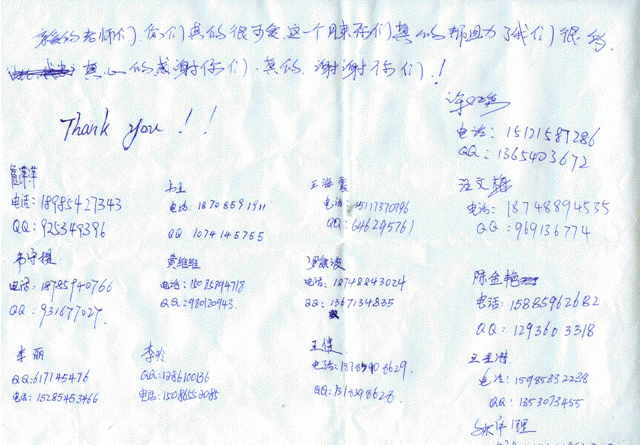 亲爱的老师们,你们真的很可爱,这一个月你们真的帮助了我们很多,
真心的感谢你们,真的,谢谢你们!
Thank you!!
电话: 15121587286
QQ: 1365403672
电话: 18985427343
QQ: 925349396
韦玉
电话: 18708591911
QQ 1074145755
王海霞
电话: 15117370796
QQ: 646295761
汪文
电话: 18748894535
QQ: 969136774
韦守提
电话: 18785940766
QQ: 931677027
黄维维
电话: 15085994718
QQ: 980120943
罗
电话: 18748843024
QQ: 1367134835
陈金艳
电话: 15885962682
QQ: 1293603318
李丽
QQ: 617145476
电话: 15285453466
李玲
QQ: 1286100136
电话: 15086552085
王俊
电话: 18785908629
QQ: 1318298628
王
电话: 15985332238
QQ: 1353073455